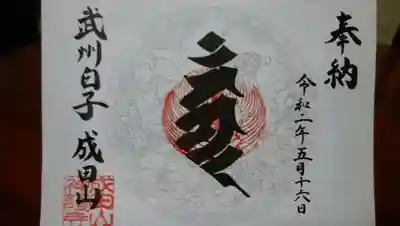 奉納
令和二年五月十六日
武州白子 成田山